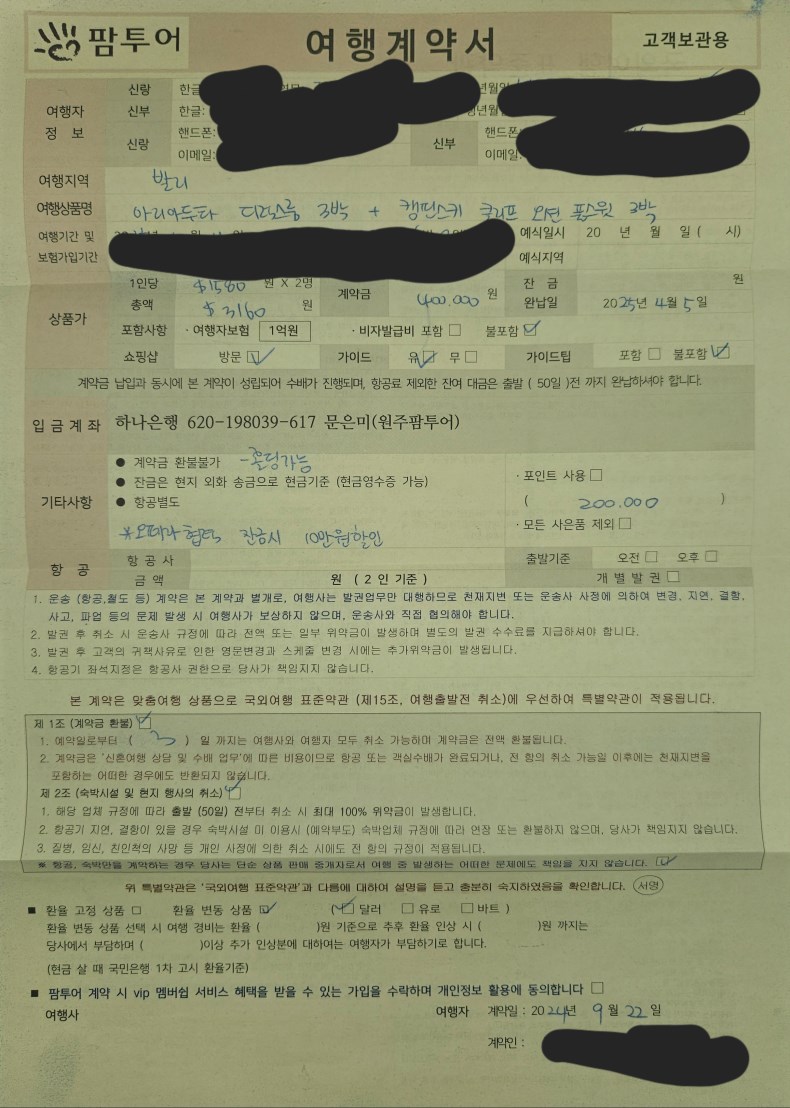 팜투어
여행계약서
고객보관용
여행자 정 보
신랑 한글
신부 한글:
신랑 핸드폰:
이메일:
신부 핸드폰
이메일:
여행지역 발리
여행상품명 아리아두타 디럭스룸 3박 + 캠핀스키 클리프 오션 풀스윗 3박
여행기간 및 보험가입기간
예식일시 20 년 월 일 ( 시)
예식지역
상품가
1인당 $1580 원 X 2명
총액 $3160 원
계약금 400.000 원
잔 금 원
완납일 2025년 4월 5일
포함사항 · 여행자보험 1억원 · 비자발급비 포함 □ 불포함 ☑
쇼핑샵 방문 ☑ 가이드 유 ☑ 무 □ 가이드팁 포함 □ 불포함 ☑
계약금 납입과 동시에 본 계약이 성립되어 수배가 진행되며, 항공료 제외한 잔여 대금은 출발 ( 50일 )전 까지 완납하셔야 합니다.
입금계좌 하나은행 620-198039-617 문은미(원주팜투어)
기타사항
● 계약금 환불불가 - 홀딩가능
● 잔금은 현지 외화 송금으로 현금기준 (현금영수증 가능)
● 항공별도
· 포인트 사용 □
( 200.000 )
· 모든 사은품 제외 □
잔금시 10만원할인
항 공
항 공 사
금 액 원 ( 2 인 기준 )
출발기준 오전 □ 오후 □
개 별 발 권 □
1. 운송 (항공,철도 등) 계약은 본 계약과 별개로, 여행사는 발권업무만 대행하므로 천재지변 또는 운송사 사정에 의하여 변경, 지연, 결항,
사고, 파업 등의 문제 발생 시 여행사가 보상하지 않으며, 운송사와 직접 협의해야 합니다.
2. 발권 후 취소 시 운송사 규정에 따라 전액 또는 일부 위약금이 발생하며 별도의 발권 수수료를 지급하셔야 합니다.
3. 발권 후 고객의 귀책사유로 인한 영문변경과 스케줄 변경 시에는 추가위약금이 발생됩니다.
4. 항공기 좌석지정은 항공사 권한으로 당사가 책임지지 않습니다.
본 계약은 맞춤여행 상품으로 국외여행 표준약관 (제15조, 여행출발전 취소)에 우선하여 특별약관이 적용됩니다.
제 1조 (계약금 환불) ☑
1. 예약일로부터 ( 3 ) 일 까지는 여행사와 여행자 모두 취소 가능하며 계약금은 전액 환불됩니다.
2. 계약금은 '신혼여행 상담 및 수배 업무'에 따른 비용이므로 항공 또는 객실수배가 완료되거나, 전 항의 취소 가능일 이후에는 천재지변을
포함하는 어떠한 경우에도 반환되지 않습니다.
제 2조 (숙박시설 및 현지 행사의 취소) ☑
1. 해당 업체 규정에 따라 출발 (50일) 전부터 취소 시 최대 100% 위약금이 발생합니다.
2. 항공기 지연, 결항이 있을 경우 숙박시설 미 이용시 (예약부도) 숙박업체 규정에 따라 연장 또는 환불하지 않으며, 당사가 책임지지 않습니다.
3. 질병, 임신, 친인척의 사망 등 개인 사정에 의한 취소 시에도 전 항의 규정이 적용됩니다.
※ 항공, 숙박만을 계약하는 경우 당사는 단순 상품 판매 중개자로서 여행 중 발생하는 어떠한 문제에도 책임을 지지 않습니다. ☑
위 특별약관은 '국외여행 표준약관'과 다름에 대하여 설명을 듣고 충분히 숙지하였음을 확인합니다. 서명
■ 환율 고정 상품 □ 환율 변동 상품 ☑ ( ☑ 달러 □ 유로 □ 바트 )
환율 변동 상품 선택 시 여행 경비는 환율 ( )원 기준으로 추후 환율 인상 시 ( )원 까지는
당사에서 부담하며 ( )이상 추가 인상분에 대하여는 여행자가 부담하기로 합니다.
(현금 살 때 국민은행 1차 고시 환율기준)
■ 팜투어 계약 시 vip 멤버쉽 서비스 혜택을 받을 수 있는 가입을 수락하며 개인정보 활용에 동의합니다 □
여행사 여행자 계약일 : 2024년 9월 22일
계약인 :